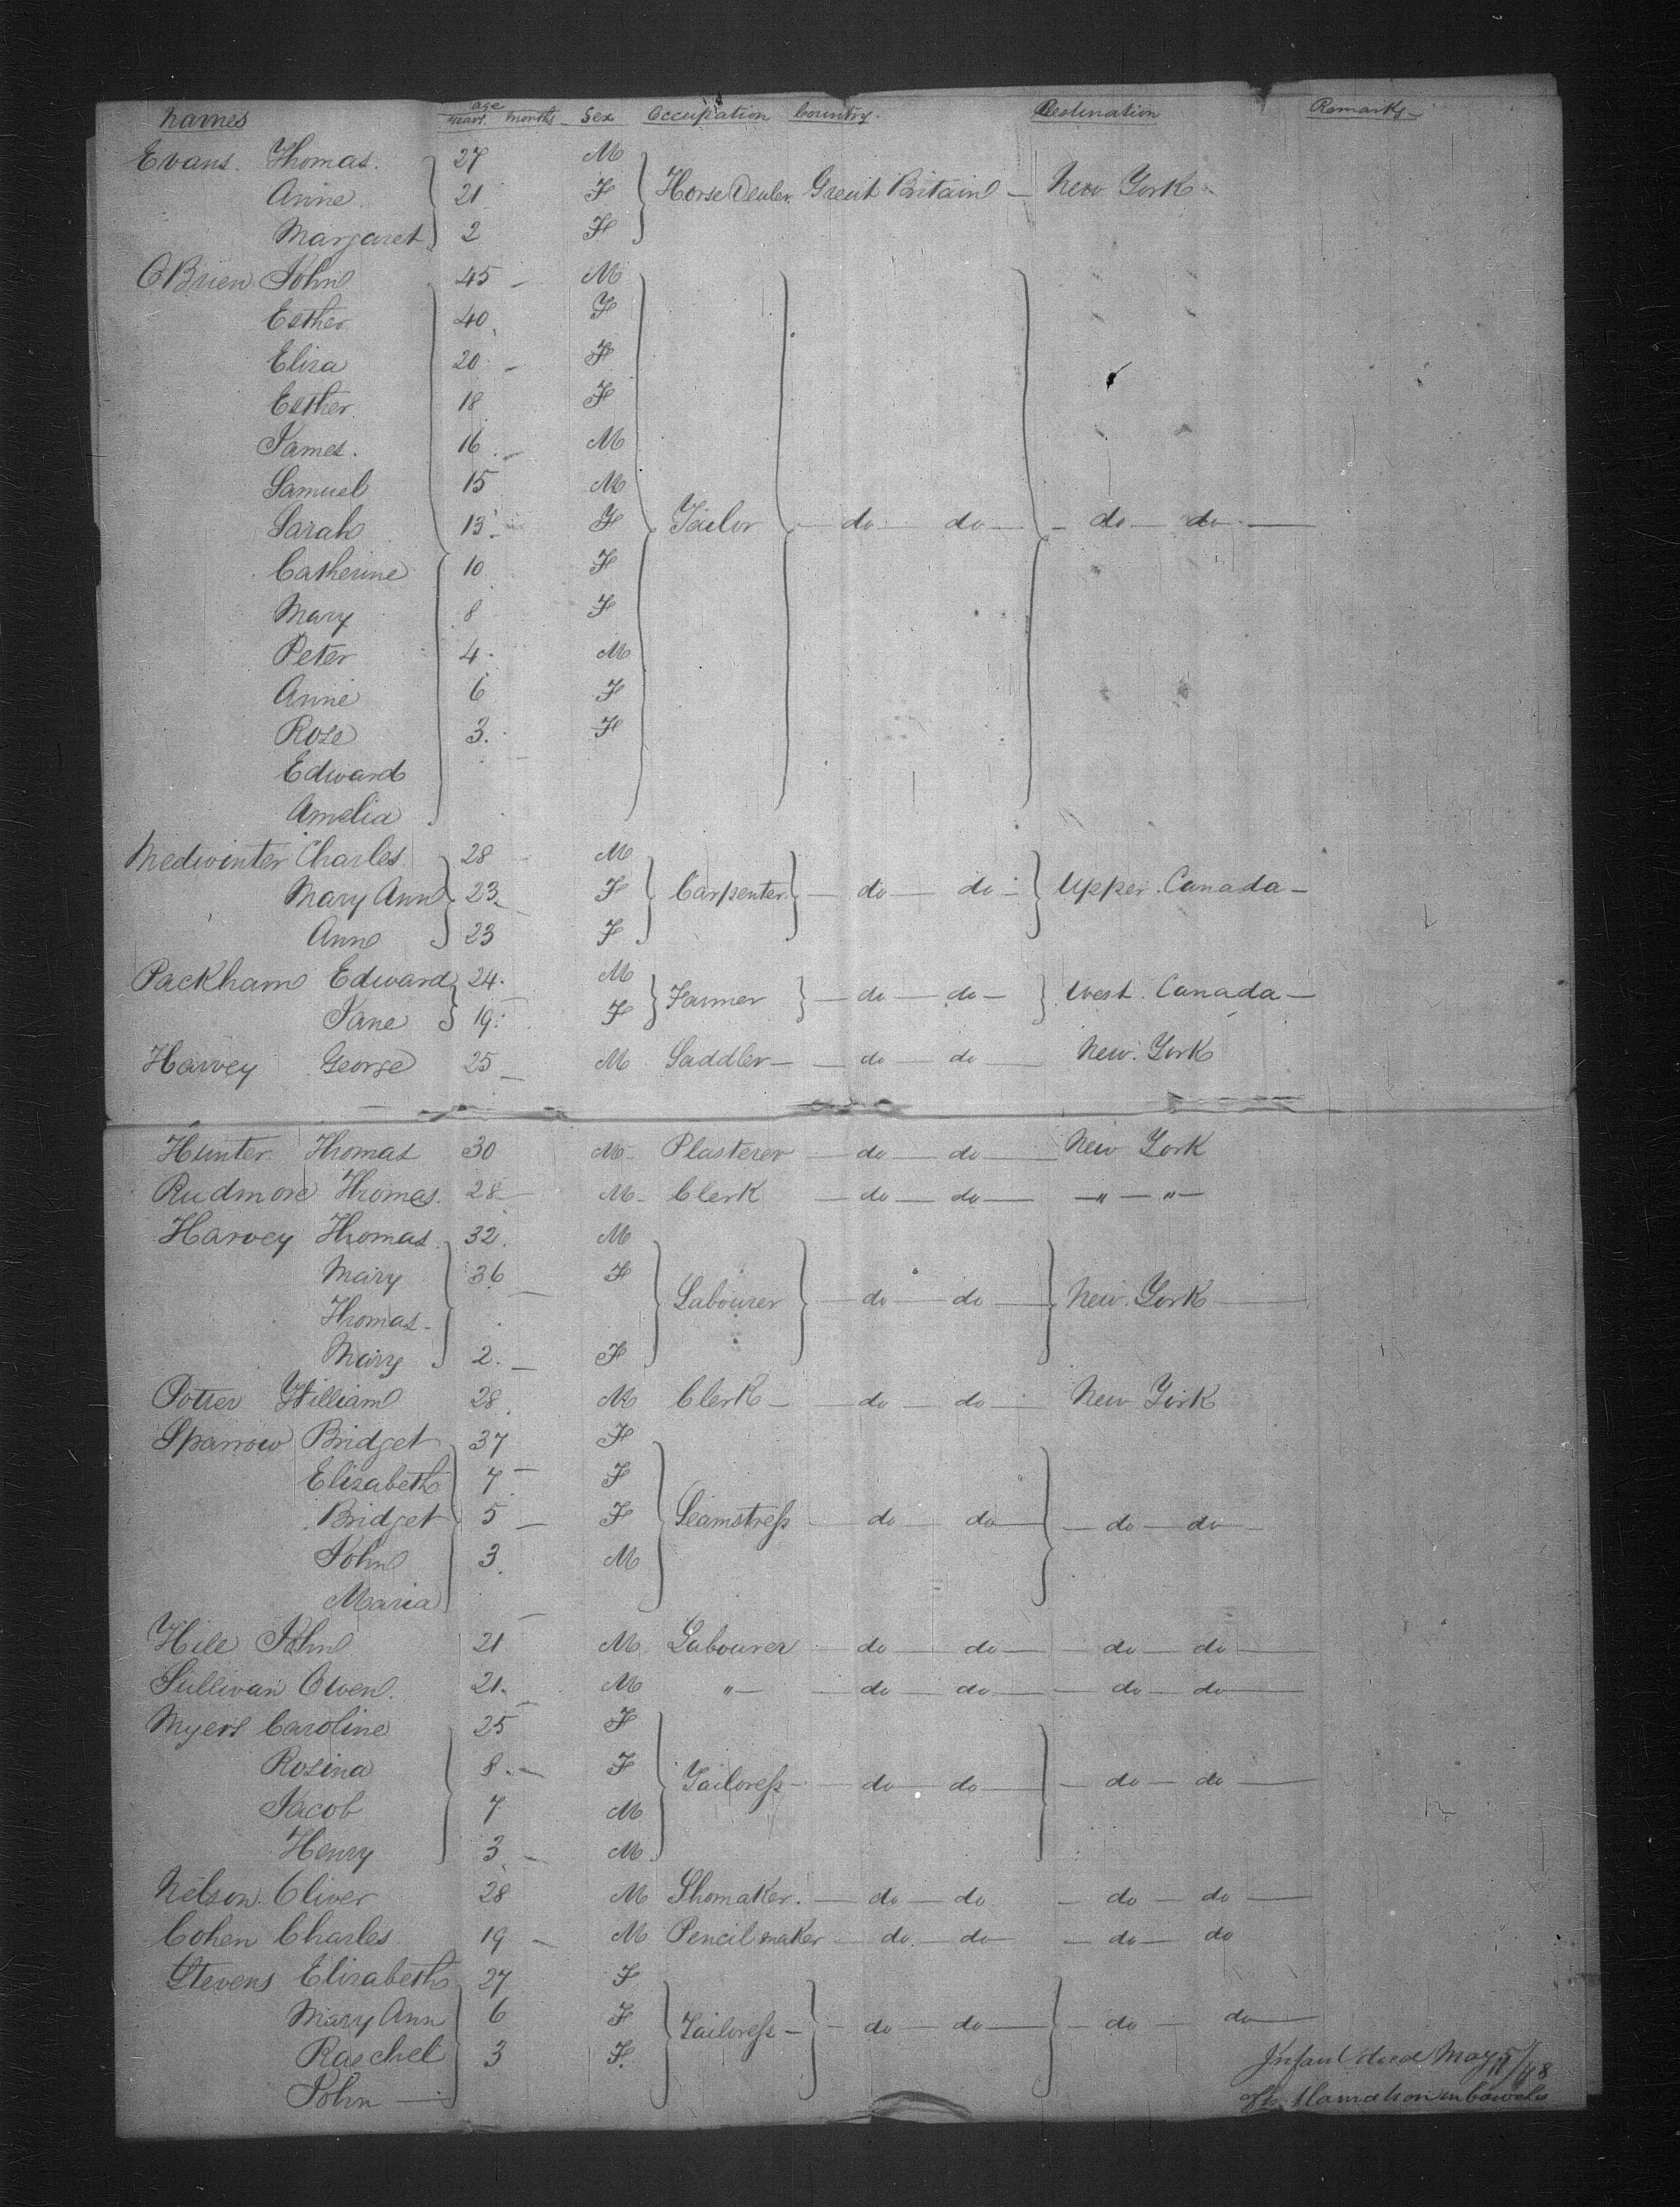 Names age years. months Sex Occupation Country. Destination Remarks
Evans. Thomas. 27 M
Anne 21 F Horse Dealer Great Britain New York
Margaret 2 F
OBrien John 45 M
Esther 40 F
Eliza 20 F
Esther 18 F
James. 16 M
Samuel 15 M
Sarah 13 F Tailor do do do do
Catherine 10 F
Mary 8 F
Peter 4 M
Anne 6 F
Rose 3. F
Edward
Amelia
Medwinter Charles. 28 M
Mary Ann 23 F Carpenter do do Upper Canada
Ann 23 F
Packham Edward 24. M
Jane 19 F Farmer do do West. Canada
Harvey George 25 M Saddler do do New York
Hunter Thomas 30 M Plasterer do do New York
Rudmore Thomas. 28 M Clerk do do " "
Harvey Thomas 32. M
Mary 36 F
Thomas Labourer do do New York
Mary 2. F
Potter William 28 M Clerk do do New York
Sparrow Bridget 37 F
Elizabeth 7 F
Bridget 5 F Seamstress do do do do
John 3 M
Maria
Hill John 21 M Labourer do do do do
Sullivan Owen. 21. M " do do do do
Myers Caroline 25 F
Rosina 8 F Tailoress do do do do
Jacob 7 M
Henry 3 M
Nelson Oliver 28 M Shomaker. do do do do
Cohen Charles 19 M Pencil maker do do do do
Stevens Elizabeth 27 F
Mary Ann 6 F Tailoress do do do do
Raechel 3 F.
John Infant died May
bowels